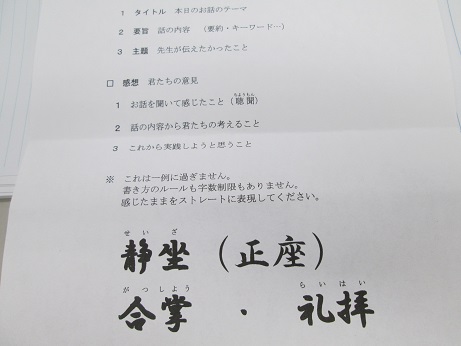 1 タイトル 本日のお話のテーマ
2 要旨 話の内容 (要約・キーワード…)
3 主題 先生が伝えたかったこと
□ 感想 君たちの意見
ちようもん
1 お話を聞いて感じたこと(聴聞)
2 話の内容から君たちの考えること
3 これから実践しようと思うこと
※ これは一例に過ぎません。
書き方のルールも字数制限もありません。
感じたままをストレートに表現してください。
せいざ
静坐(正座)
がつしよう らいはい
合掌・礼拝